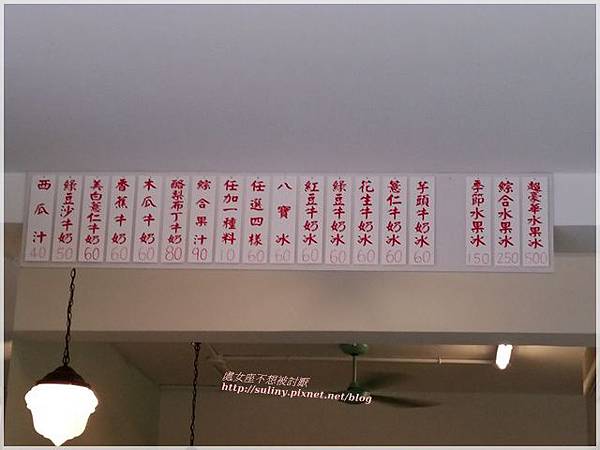 西瓜汁 40
綠豆沙牛奶 50
美白薏仁牛奶 60
香蕉牛奶 60
木瓜牛奶 60
酪梨布丁牛奶 80
綜合果汁 90
任加一種料 10
任選四樣 60
八寶冰 60
紅豆牛奶冰 60
綠豆牛奶冰 60
花生牛奶冰 60
薏仁牛奶冰 60
芋頭牛奶冰 60
季節水果冰 150
綜合水果冰 250
超豪華水果冰 500
處女座不想被討厭
http://suliny.pixnet.net/blog